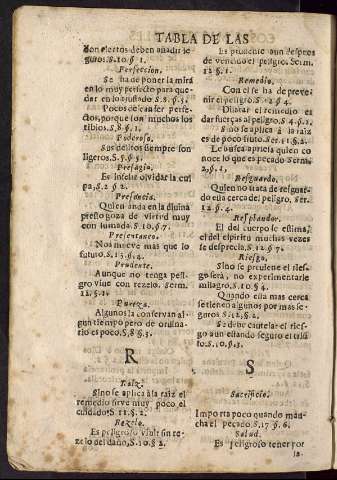 TABLA DE LAS
con ciertos deben añadir se
guros. S. 10. § 1.
Perfeccion.
Se ha de poner la mira
en lo muy perfecto para que
dar en lo ajustado S. 8. § 3.
Pocos desean ser perfec
tos, porque son muchos los
tibios, S, 8 § 1.
Poderoso.
Sus delitos siempre son
ligeros, S. 5. § 5.
Presagio.
Es infeliz olvidar la cul
pa, S. 2 § 2.
Presencia.
Quien anda en la divina
presto goza de virtud muy
consumada. S. 10. § 7.
Presentaneo.
Nos mueve mas que lo
futuro. S. 13. § 4.
Prudente.
Aunque no tenga peli-
gro vive con rezelo. Serm.
12. § 1.
Pureza.
Algunos la conservan al-
gun tiempo pero de ordina-
rio es poco, S, 8 § 3.
R
Raiz.
Sino se aplica à la raiz el
remedio sirve muy poco el
cuidado, S 11. § 2.
Rezelo.
Es peligroso vivir sin re-
zelo del daño, S. 10. § 2.
Es prudente aun despues
de vencido el peligro. Serm.
12 § 1.
Remedio.
Con el se ha de preve-
nir el peligro. S. 12 § 4.
Dilatar el remedio es
dar fuerças al peligro, S. 4 § 1.
Sino se aplica à la raiz
es de poco fruto. Ser. 11. § 2.
Le busca apriesa quien co
noce lo que es pecado Serm.
2, § 1.
Resguardo.
Quien no trata de resguar-
do esta cerca del peligro. Ser.
12. § 4.
Resplandor.
El del cuerpo se estima,
el del espiritu muchas vezes
se desprecia, S. 12 § 7.
Riesgo.
Sino se previene el ries-
go será, no experimentarle
milagro, S. 10 § 4.
Quando esta mas cerca
se tienen algunos por mas se-
guros. S. 12 §, 2.
Se debe cautelar el ries-
go aun estando seguro el triũ
fo, S. 10. § 3.
S
Sacrificio.
Importa poco quando man-
cha el pecado, S. 17 § 6.
Salud.
Es peligroso tener por
la